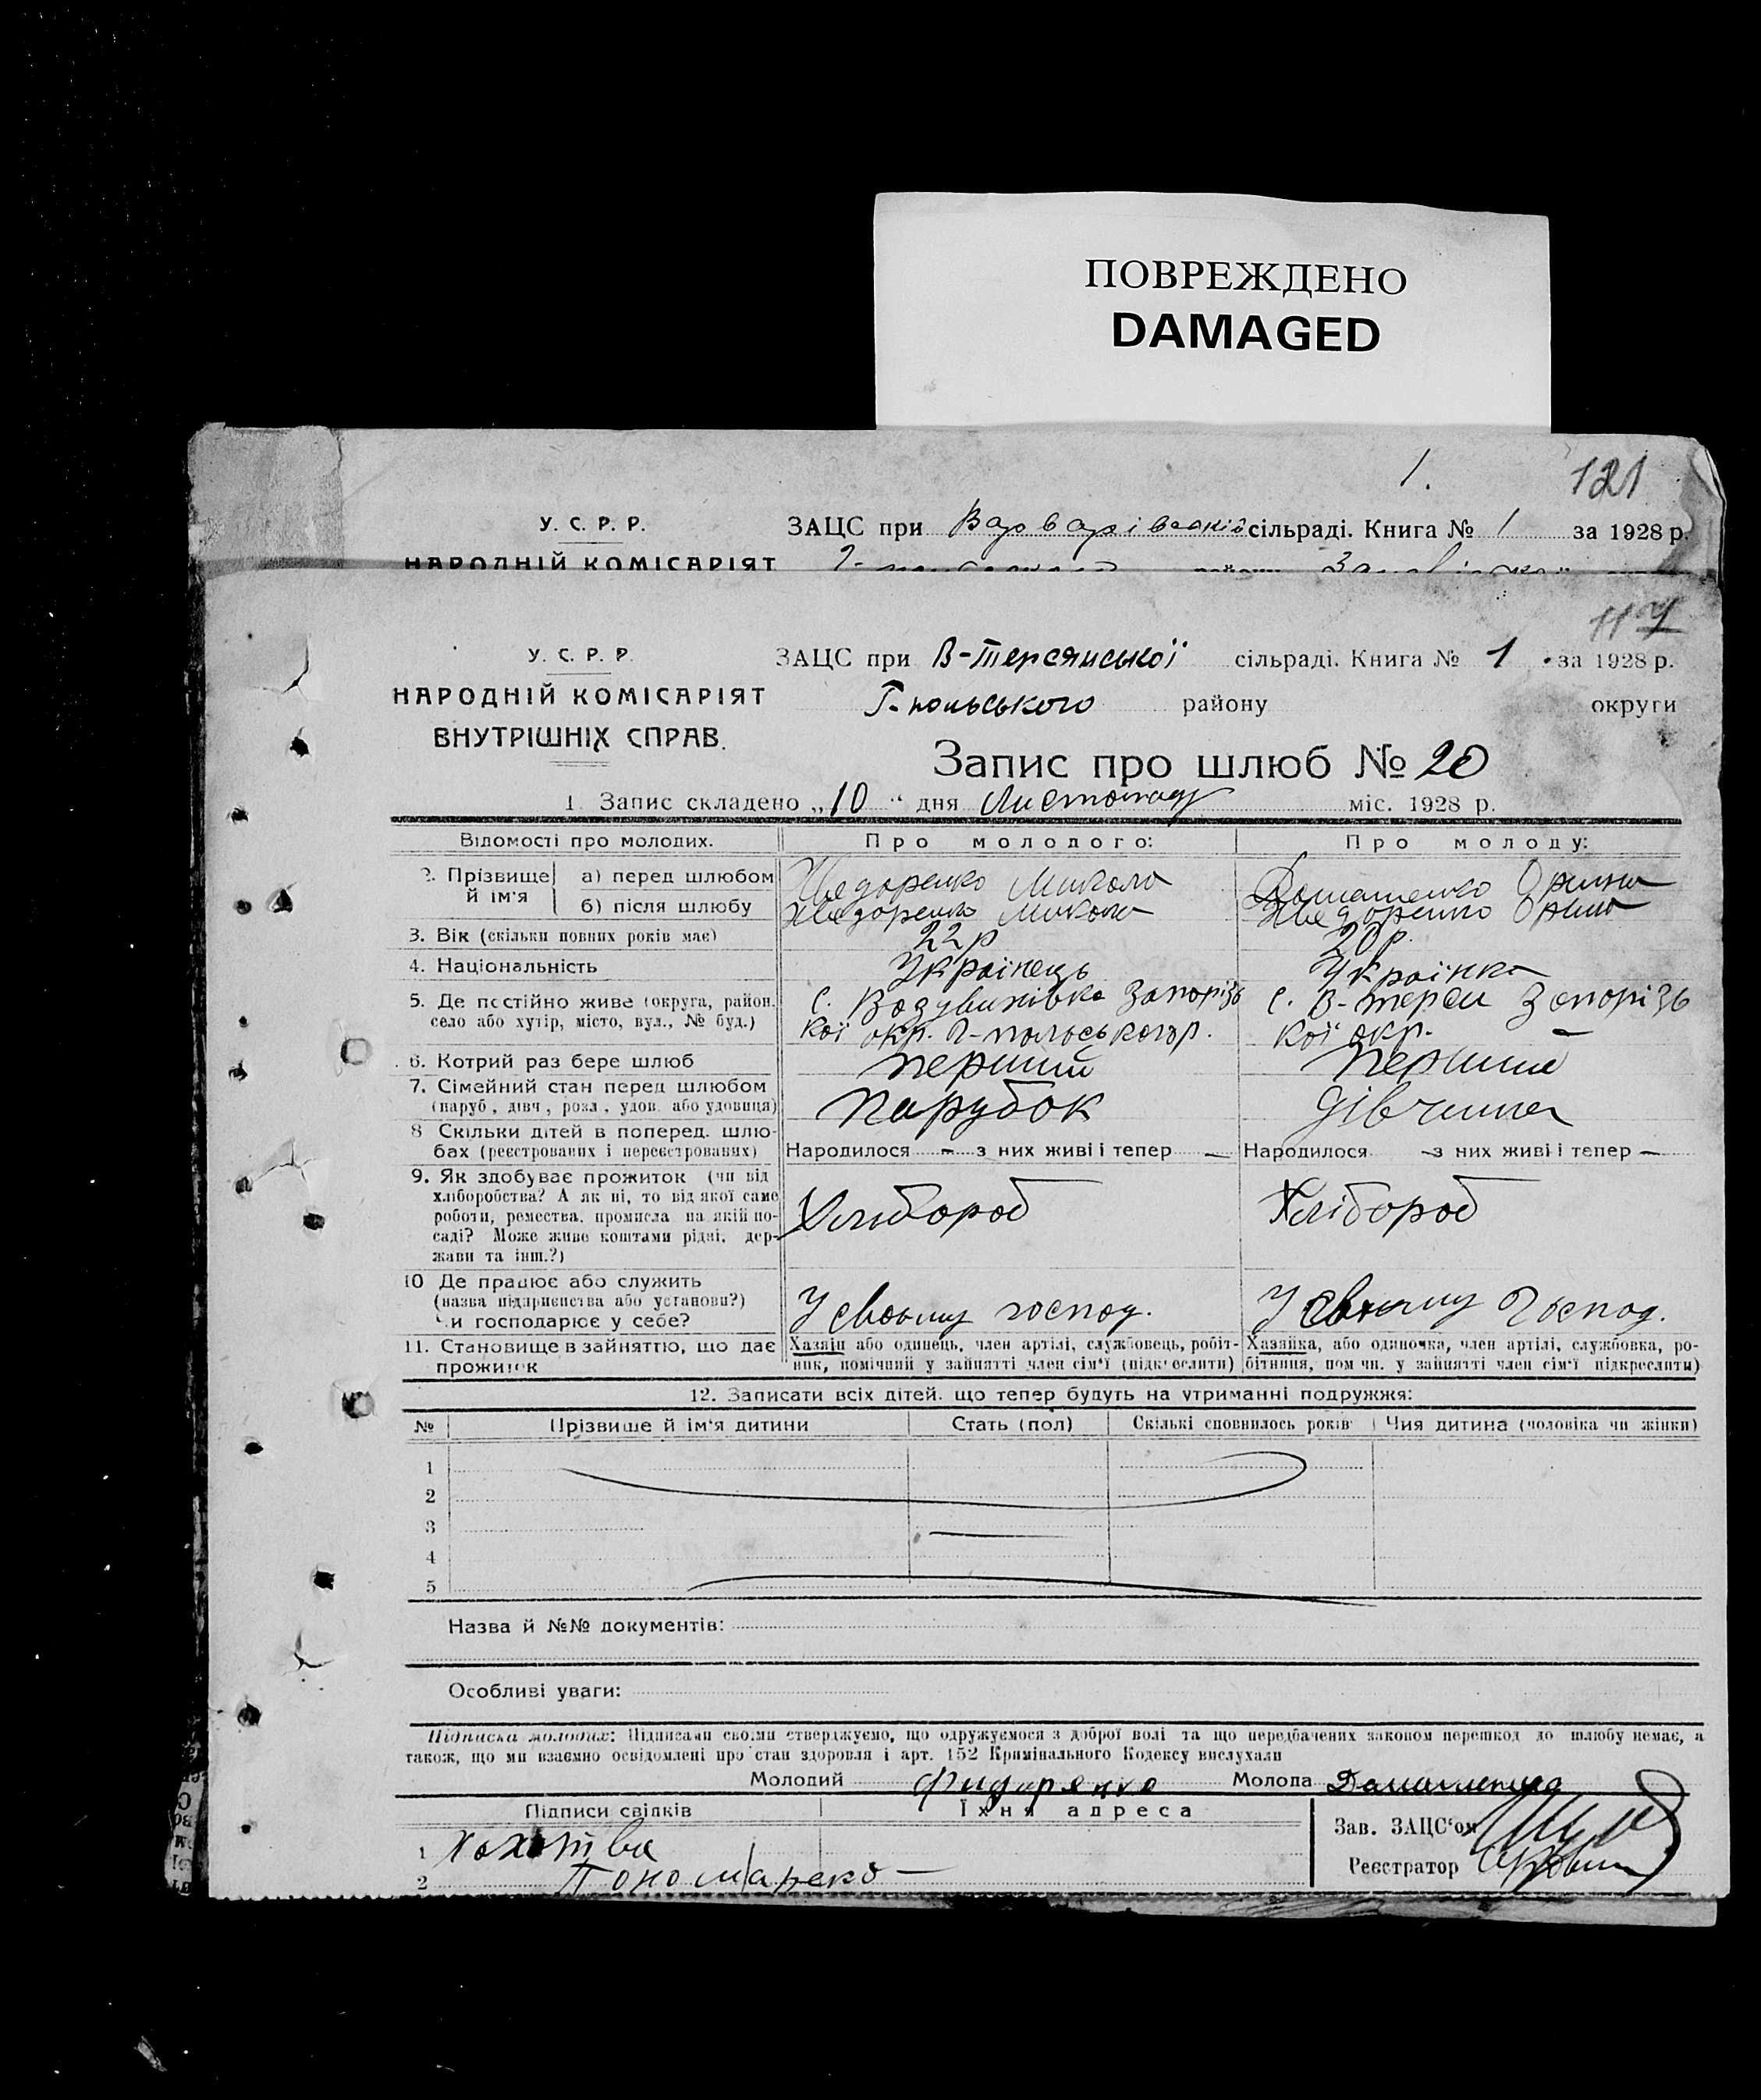 ПОВРЕЖДЕНО
DAMAGED
1.
121
У. С. Р. Р.
ЗАЦС при Варварівській сільраді. Книга № 1 за 1928 р.
НАРОДНІЙ КОМІСАРІЯТ
117
У. С. Р. Р.
ЗАЦС при В-Терсянської сільраді. Книга № 1. за 1928 р.
НАРОДНІЙ КОМІСАРІЯТ
Г-польського району округи
ВНУТРІШНІХ СПРАВ.
Запис про шлюб № 20
1. Запис складено „10" дня Листопаду міс. 1928 р.
Відомості про молодих. Про молодого: Про молоду:
2. Прізвище й ім'я
а) перед шлюбом Хведоренко Микола Домашенко Орина
б) після шлюбу Хведоренко Микола Хведоренко Орина
3. Вік (скільки повних років має) 22 р 20 р.
4. Національність Українець Українка
5. Де постійно живе (округа, район, с. Воздвижівка Запорізь с. В-Терси Запорізь
село або хутір, місто, вул., № буд.) кої окр. Г-польського р. кої окр.
6. Котрий раз бере шлюб перший перший
7. Сімейний стан перед шлюбом Парубок дівчина
(паруб., дівч., розл., удов. або удовиця)
8 Скільки дітей в поперед. шлю-
бах (реєстрованих і нереєстрованих) Народилося - з них живі і тепер — Народилося - з них живі і тепер —
9. Як здобуває прожиток (чи від
хліборобства? А як ні, то від якої саме Хлібороб Хлібороб
роботи, ремества, промисла на якій по-
саді? Може живе коштами рідні, дер-
жави та інш.?)
10 Де працює або служить
(назва підприємства або установи?) У своьму господ. У своьму Господ.
Чи господарює у себе?
11. Становище в зайняттю, що дає Хазяін або одинець, член артілі, службовець, робіт- Хазяйка, або одиночка, член артілі, службовка, ро-
прожиток ник, помічний у зайнятті член сім'ї (підкреслити) бітниця, помічн. у зайнятті член сім'ї підкреслити)
12. Записати всіх дітей, що тепер будуть на утриманні подружжя:
№ Прізвище й ім'я дитини Стать (пол) Скількі сповнилось років Чия дитина (чоловіка чи жінки)
1
2
3
4
5
Назва й №№ документів:
Особливі уваги:
Підписка молодих: Підписами своїми стверджуємо, що одружуємося з доброї волі та що передбачених законом перешкод до шлюбу немає, а
також, що ми взаємно освідомлені про стан здоровля і арт. 152 Кримінального Кодексу вислухали
Молодий Фидоренко Молода Домашенко
Підписи свідків Їхня адреса
Зав. ЗАЦС'ом
1
Реєстратор
2 Пономаренко